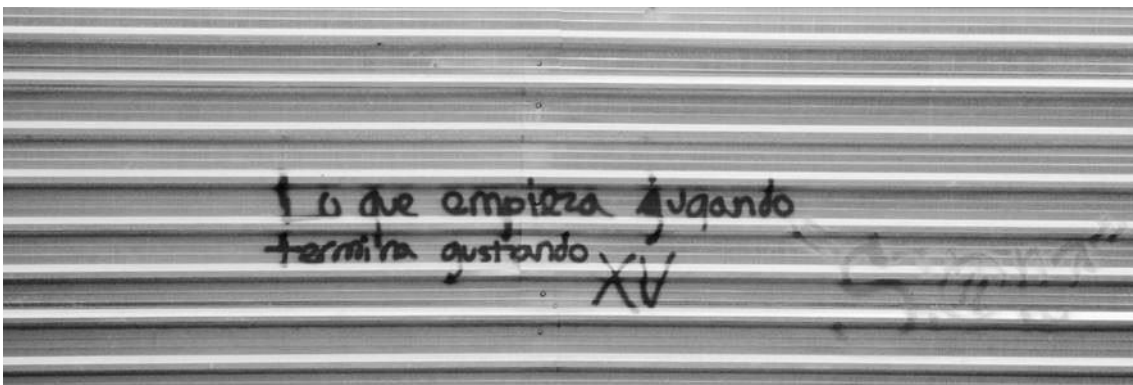 Lo que empieza jugando
termina gustando
XV